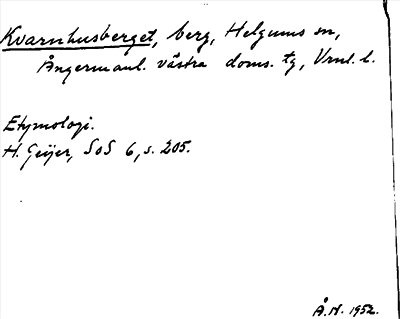 Kvarnhusberget, berg, Helgums sn,
Ångermanl. västra doms. tg, Vrnl. l.
Etymologi.
H. Geijer, SoS 6, s. 205.
Å.H. 1952.